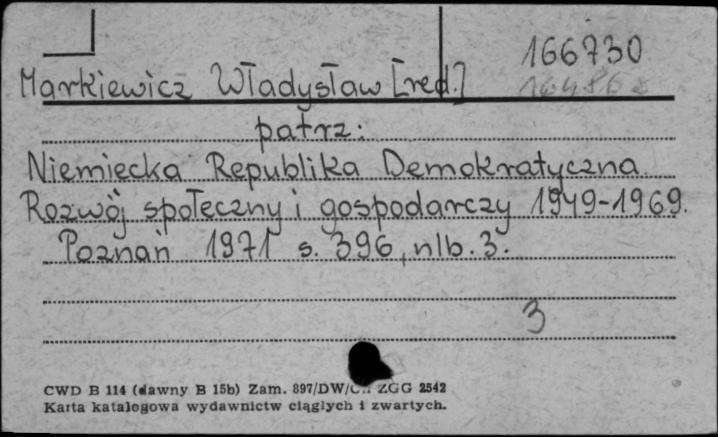 166730
Markiewicz Władysław [red.]
patrz:
Niemiecka Republika Demokratyczna.
Rozwój społeczny i gospodarczy 1949-1969.
Poznań 1971 s. 396, nlb. 3.
3
CWD B 114 (dawny B 15b) Zam. 897/DW/ ZGG 2542
Karta katalogowa wydawnictw ciągłych i zwartych.